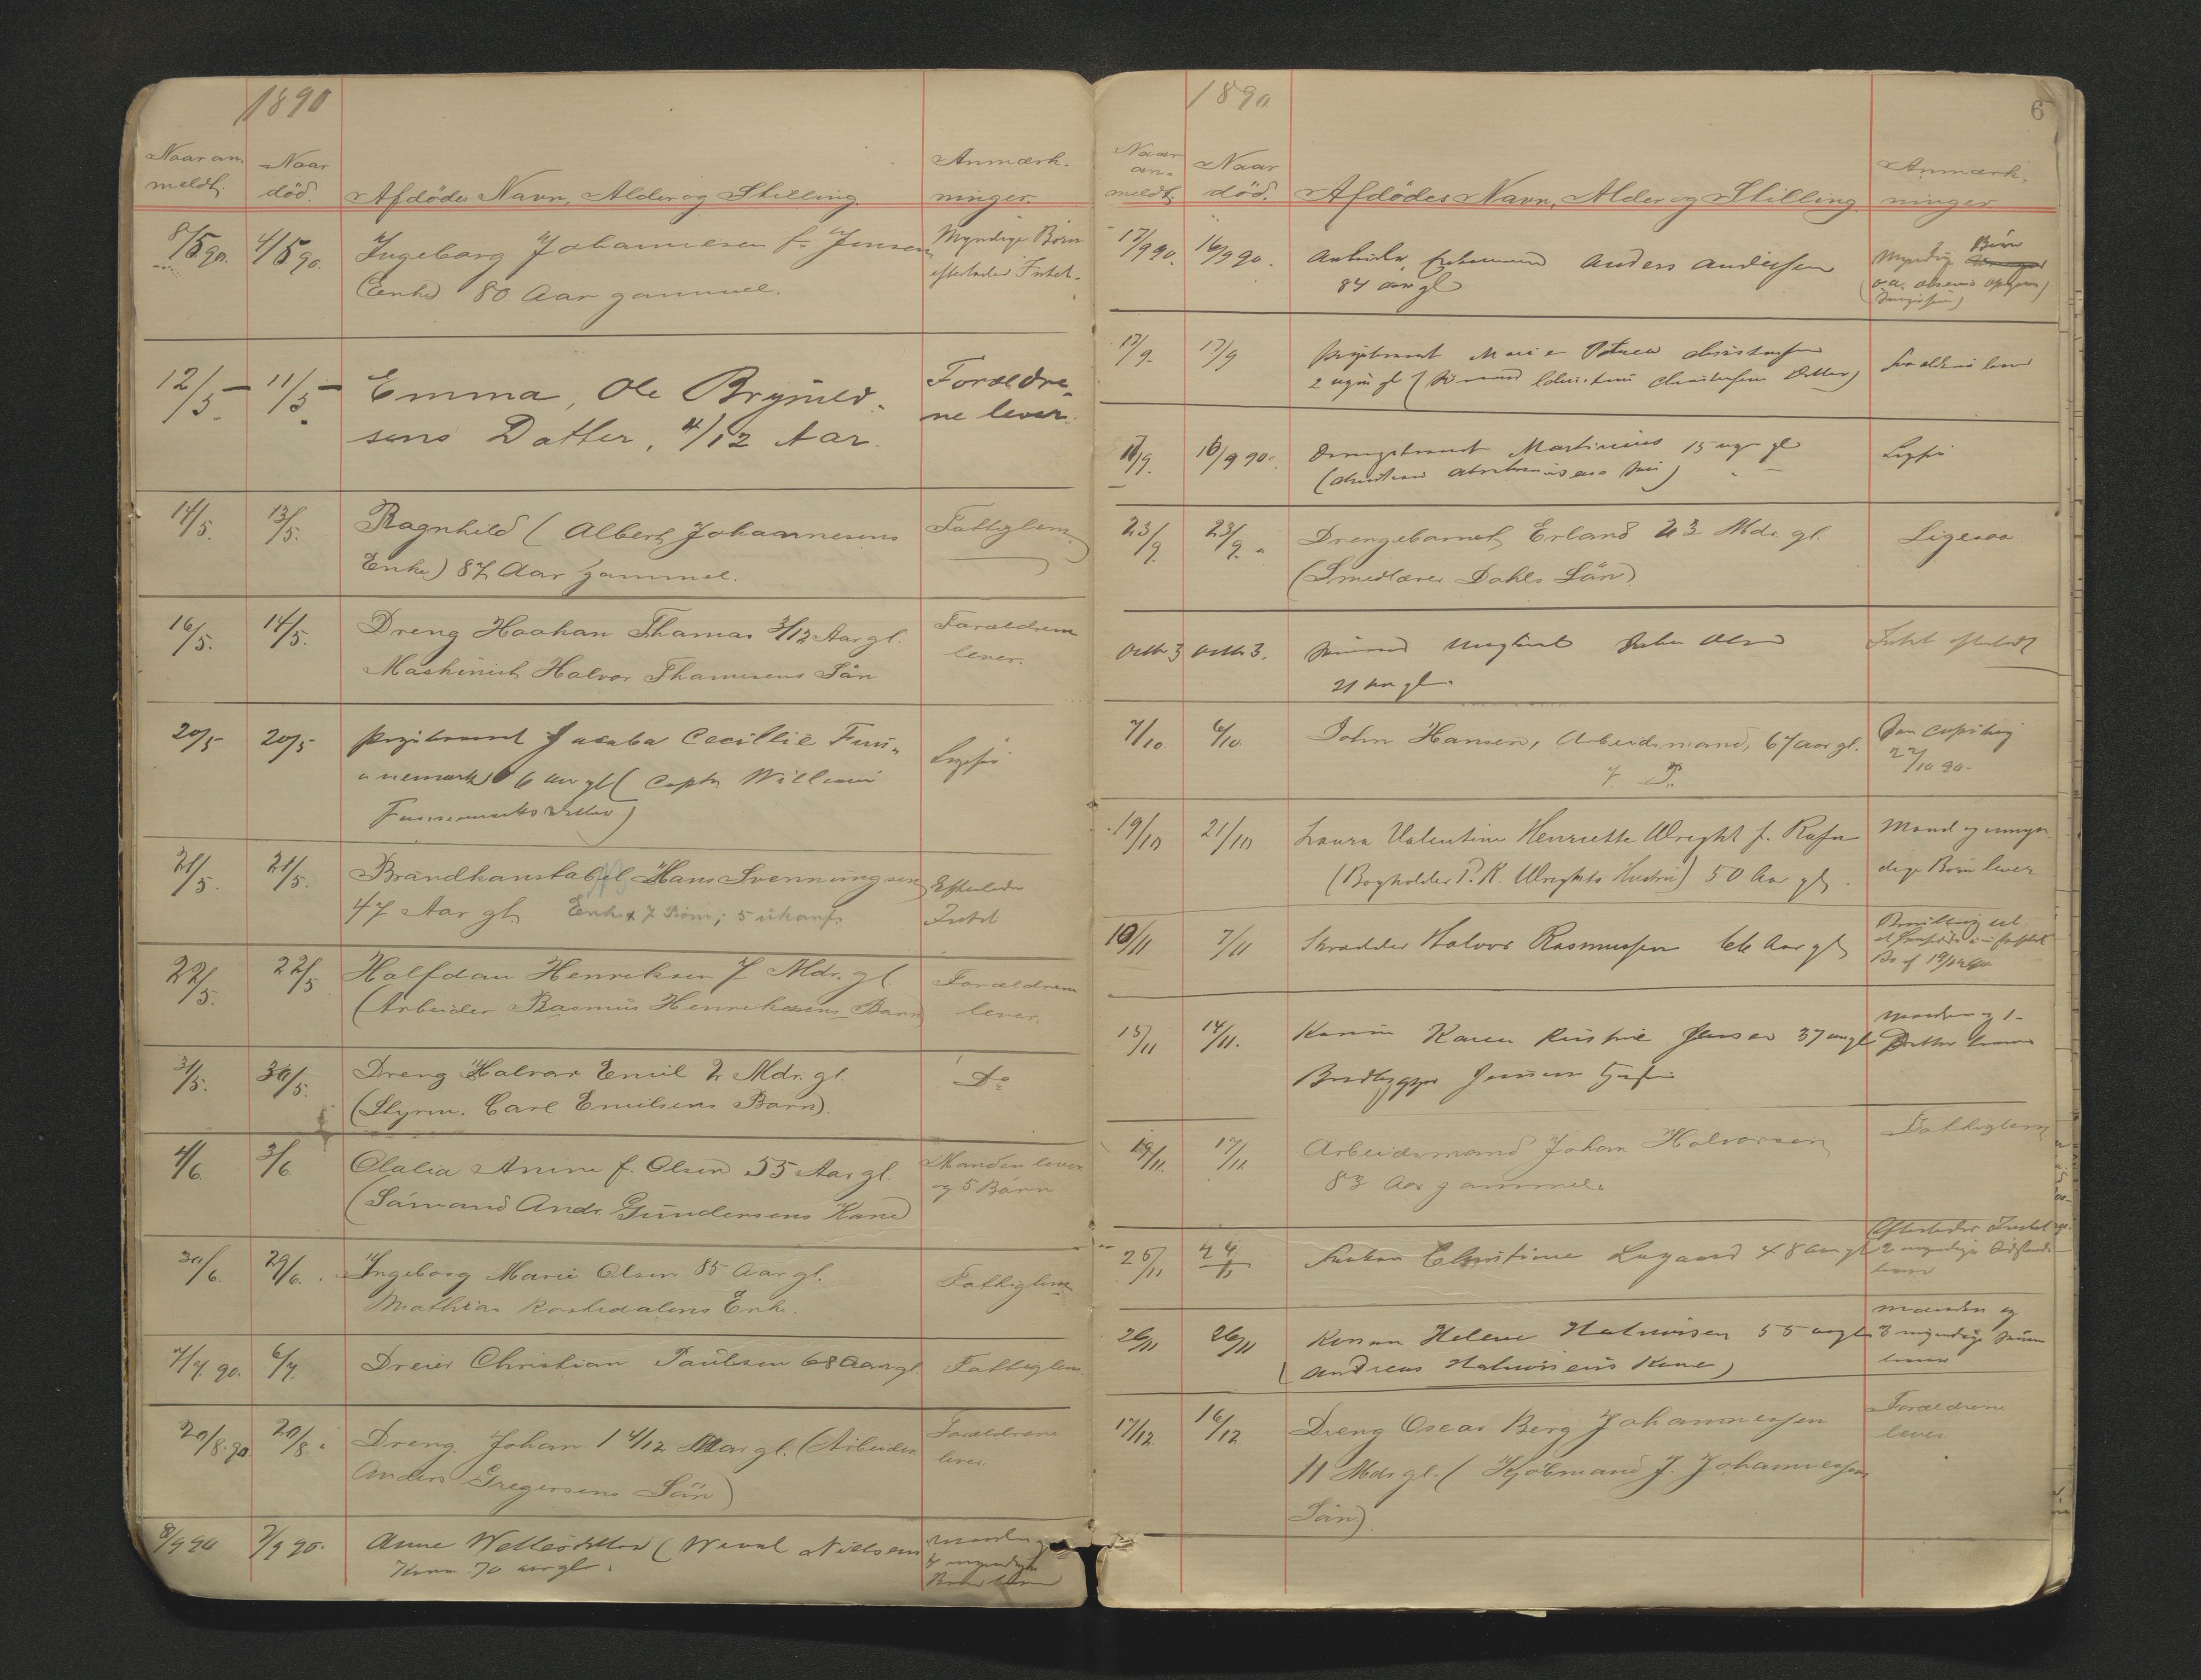 1890
Naar an-
meldt.
Naar
död.
Afdödes Navn, Alder og Stilling.
Anmærk-
ninger.
8/5 90. 4/5 90. Ingeborg Johannesen f. Jensen
Enke 80 Aar gammel.
Myndige Börn
efterlader Intet.
12/5 11/5 Emma, Ole Brynild-
sens Datter, 4/12 Aar.
Forældre-
ne lever.
14/5. 13/5. Ragnhild (Albert Johannesens
Enke) 87 Aar gammel.
Fattiglem.
16/5. 14/5. Dreng Haakan Thomas 3/12 Aar gl.
Maskinist Halvor Thomesens Sön
Forældrene
lever.
20/5 20/5 Pigebarnet Jacoba Cecillie Fun-
nemark 6 aar gl (Captn William
Funnemarks Datter)
Ligesaa
21/5. 21/5. Brandkonstabel Hans Svenningsen
47 Aar gl. Enke & 7 Börn; 5 ukonf.
Efterlader
Intet
22/5. 22/5 Halfdan Henriksen 7 Mdr. gl.
(Arbeider Rasmus Henriksens Barn)
Forældrene
lever.
31/5. 30/5. Dreng Halvor Emil 2 Mdr. gl.
(Styrm. Carl Emilsens Barn).
Do
4/6. 3/6. Olalia Anine f. Olsen 55 Aar gl.
(Sömand Andr. Gundersens Kone)
Manden lever
og 5 Börn
30/6. 29/6. Ingeborg Marie Olsen 85 Aar gl.
Mathias Enke.
Fattiglem
7/7. 90. 6/7. Dreier Christian Paulsen 68 Aar gl.
Fattiglem.
20/8. 90 20/8. Dreng Johan 1 4/12 Aar gl. (Arbeider
Anders Gregersens Sön)
Forældrene
lever.
8/9 90 7/9 90. Anne (Nielsens
Kone 70 aar gl.
Manden og
4 myndige
Börn lever
1890
6
Naar
an-
meldt.
Naar
död.
Afdödes Navn, Alder og Stilling
Anmærk-
ninger
17/9 90. 16/9 90. Arbeider, Enkemand Anders Andersen
84 aar gl
Myndige Börn
17/9. 17/9 Pigebarnet Marie Petrea Christensen
2 uger gl (Sömand Christensens Datter)
Forældrene lever
16/9 90. Drengebarnet Martinius 15 uger gl
(Christian Abrahamsens Sön)
Ligesaa
23/9. 23/9. Drengebarnet Erland 3 Mdr. gl.
(Smedlærer Dahls Sön).
Ligesaa
Octb. 3 Octb. 3. Sömand Ungkarl John Olsen
21 aar gl.
Intet efterladt
7/10. 6/10. John Hansen, Arbeidsmand, 67 aar gl.
22/10 90-
19/10 21/10 Laura Valentine Henriette Wright f. Rafn
(Bogholder P. R. Wrights Hustru) 50 Aar gl.
Mand og umyn-
dige Börn lever
10/11 7/11 Skrædder Halvor Rasmussen 66 Aar gl
15/11 14/11. Konen Karen Kirstine Jensen 37 aar gl
Manden og 1
Datter lever
19/11. 17/11. Arbeidsmand Johan Halvorsen
83 Aar gammel.
Fattiglem
25/11 24/11 Christine Lugaard 48 aar gl
Efterlader Intet
2 myndige
lever
26/11 26/11 Konen Helene Halvorsen 55 aar gl
(Andreas Halvorsens Kone)
Manden og
3 myndige Sönner
lever
17/12. 16/12 Dreng Oscar Berg Johannessen
11 Mdr gl. (Kjöbmand J. Johannessen
Sön)
Forældrene
lever